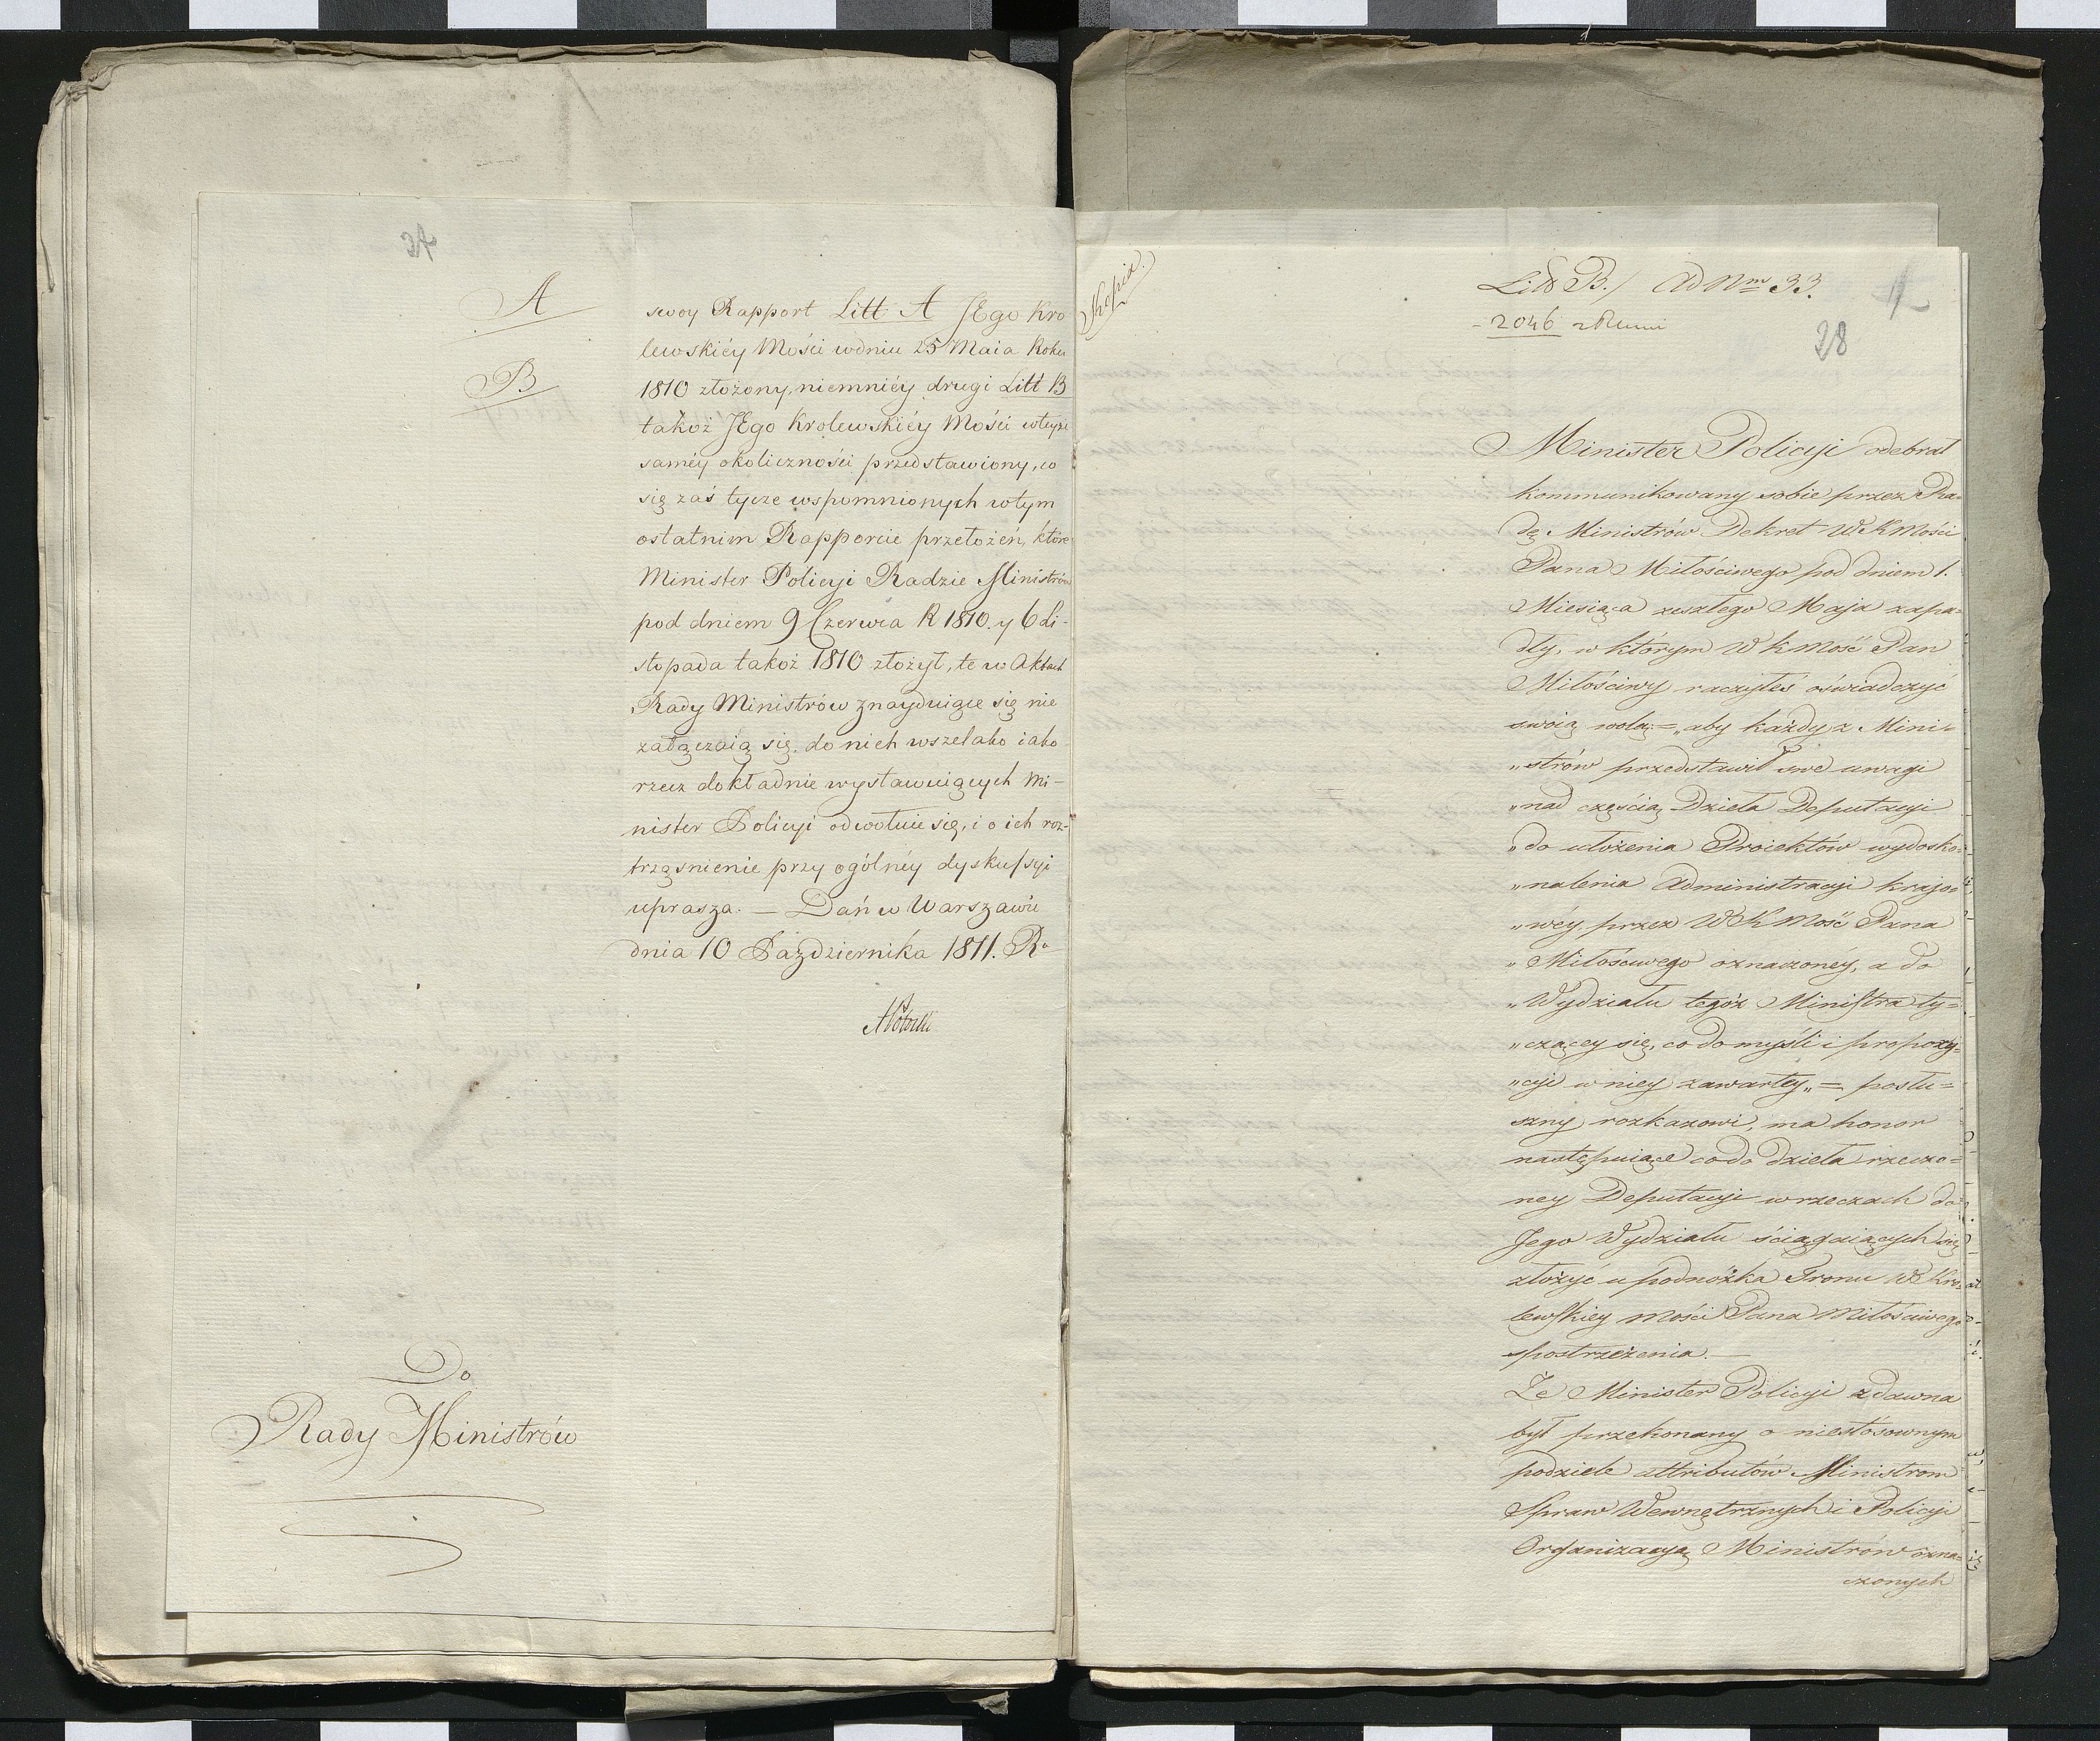 A
B
swoy Rapport Litt A JEgo Kro
lewskiéy Mości w dniu 25 Maia Roku
1810 złożony, niemniéy drugi Litt B
takoż JEgo Krolewskiéy Mości w teyże
saméy okoliczności przedstawiony, co
się zaś tycze wspomnionych w tym
ostatnim Rapporcie przełożeń, które
Minister Policyi Radzie Ministrów
pod dniem 9 Czerwca R 1810. y 6 Li-
stopada takoż 1810 złożył, te w Aktach
Rady Ministrów znayduiące się nie
załączaią się, do nich wszelako iako
rzecz dokładnie wystawuiących Mi-
nister Policyi odwołuie się, i o ich roz-
trząśnienie przy ogólnéy dyskussyi
uprasza. — Dań w Warszawie
dnia 10 Października 1811. Ru
APotocki
Do
Rady Ministrów
Kopia.
Litt B./ Ad Nm 33.
- 2046
28
Minister Policyi odebrał
kommunikowany sobie przez Ra-
dę Ministrów Dekret W K Mości
Pana Miłościwego pod dniem 1.
Miesiąca zeszłego Maja zapa-
dły, w którym W K Mość Pan
Miłościwy raczyłeś oświadczyć
swoią wolą = „aby każdy z Mini-
„strów przedstawił swe uwagi
„nad częścią Dzieła Deputacyi
„do ułożenia Proiektów wydosko-
„nalenia Administracyi krajo-
„wéy, przez W K Mość Pana
„Miłościwego oznaczonéy, a do
„Wydziału tegoż Ministra ty-
„czącey się, co do myśli i propozy-
„cyi w niey zawartey„ = posłu-
szny rozkazowi, ma honor
następuiące co do dzieła rzeczo-
ney Deputacyi w rzeczach do
Jego Wydziału ściągaiących się
złożyć u podnóżka Tronu W Kró-
lewskiey Mości Pana Miłościwego
spostrzeżenia. —
Że Minister Policyi zdawna
był przekonany o niestósownym
podziele attributów Ministrom
Spraw Wewnętrznych i Policyi
Organizacyą Ministrów ozna-
czonych